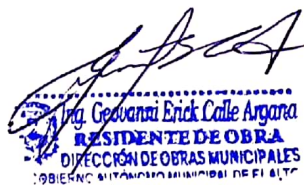 Ing. Geovanni Erick Calle Argana
RESIDENTE DE OBRA
DIRECCIÓN DE OBRAS MUNICIPALES
GOBIERNO AUTÓNOMO MUNICIPAL DE EL ALTO